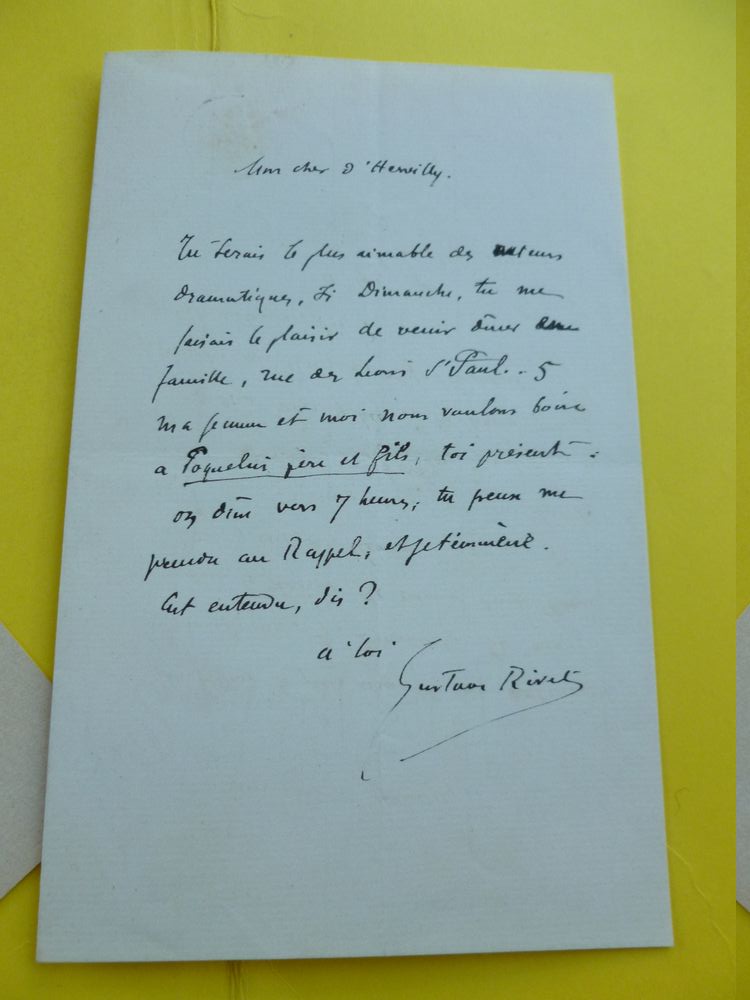 Mon cher d'Hervilly.
Tu serais le plus aimable des auteurs
dramatiques, si Dimanche, tu me
faisais le plaisir de venir dîner en
famille, rue des Lions St Paul. 5
ma femme et moi nous voulons boire
a Poquelin père et fils, toi présent.
on dîne vers 7 heures; tu peux me
prendre au Rappel, et je t'emmène.
C'est entendu, dis ?
a toi
Gustave Rivet